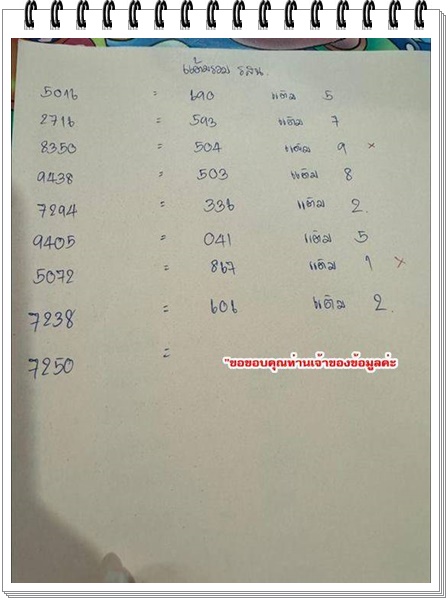 แต้มรวม
5016 = 690 แต้ม 5
2716 = 593 แต้ม 7
8350 = 504 แต้ม 9 ×
9438 = 503 แต้ม 8
7294 = 336 แต้ม 2.
9405 = 041 แต้ม 5
5072 = 867 แต้ม 1 ×
7238 = 606 แต้ม 2.
7250 =
"ขอขอบคุณท่านเจ้าของข้อมูลค่ะ